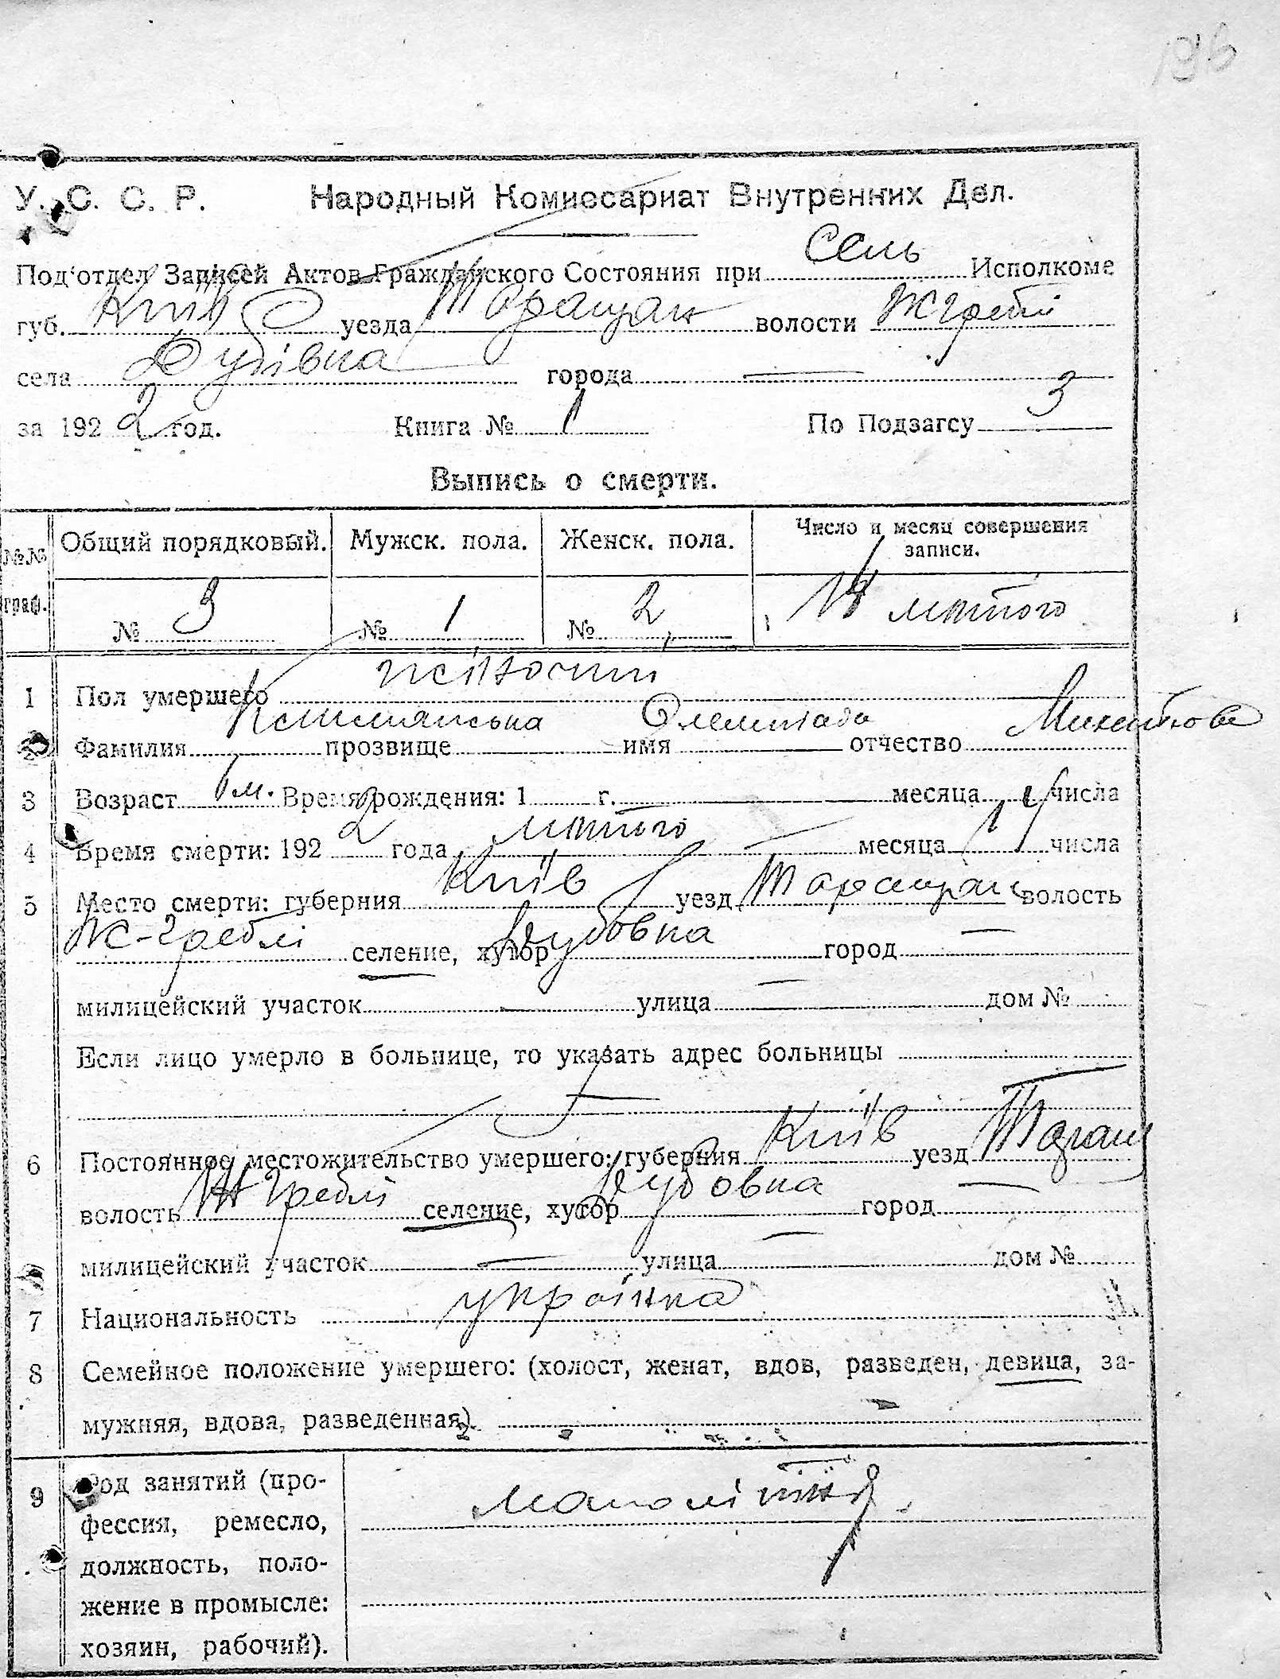 196
У. С. С. Р. Народный Комиссариат Внутренних Дел.
Под'отдел Записей Актов Гражданского Состояния при Сель Исполкоме
губ. Київ уезда Таращан волости Ж гребл
села Дубівка города —
за 1922 год. Книга № 1 По Подзагсу 3
Выпись о смерти.
№№ граф. Общий порядковый. Мужск. пола. Женск. пола. Число и месяц совершения записи.
№ 3 № 1 № 2 14 лютого
1 Пол умершего жіночий
2 Фамилия прозвище Олемпіада имя отчество
3 Возраст м. Время рождения: 1 г. месяца числа
4 Время смерти: 1922 года лютого месяца 14 числа
5 Место смерти: губерния Київ уезд Таращан волость
Ж-Греблі селение, хутор Дубовка город —
милицейский участок — улица — дом №
Если лицо умерло в больнице, то указать адрес больницы
6 Постоянное местожительство умершего: губерния Київ уезд Таращ
волость Ж Греблі селение, хутор Дубовка город —
милицейский участок — улица — дом №
7 Национальность українка
8 Семейное положение умершего: (холост, женат, вдов, разведен, девица, за-
мужняя, вдова, разведенная)
9 Род занятий (про-
фессия, ремесло,
должность, поло-
жение в промысле:
хозяин, рабочий).
малолітня